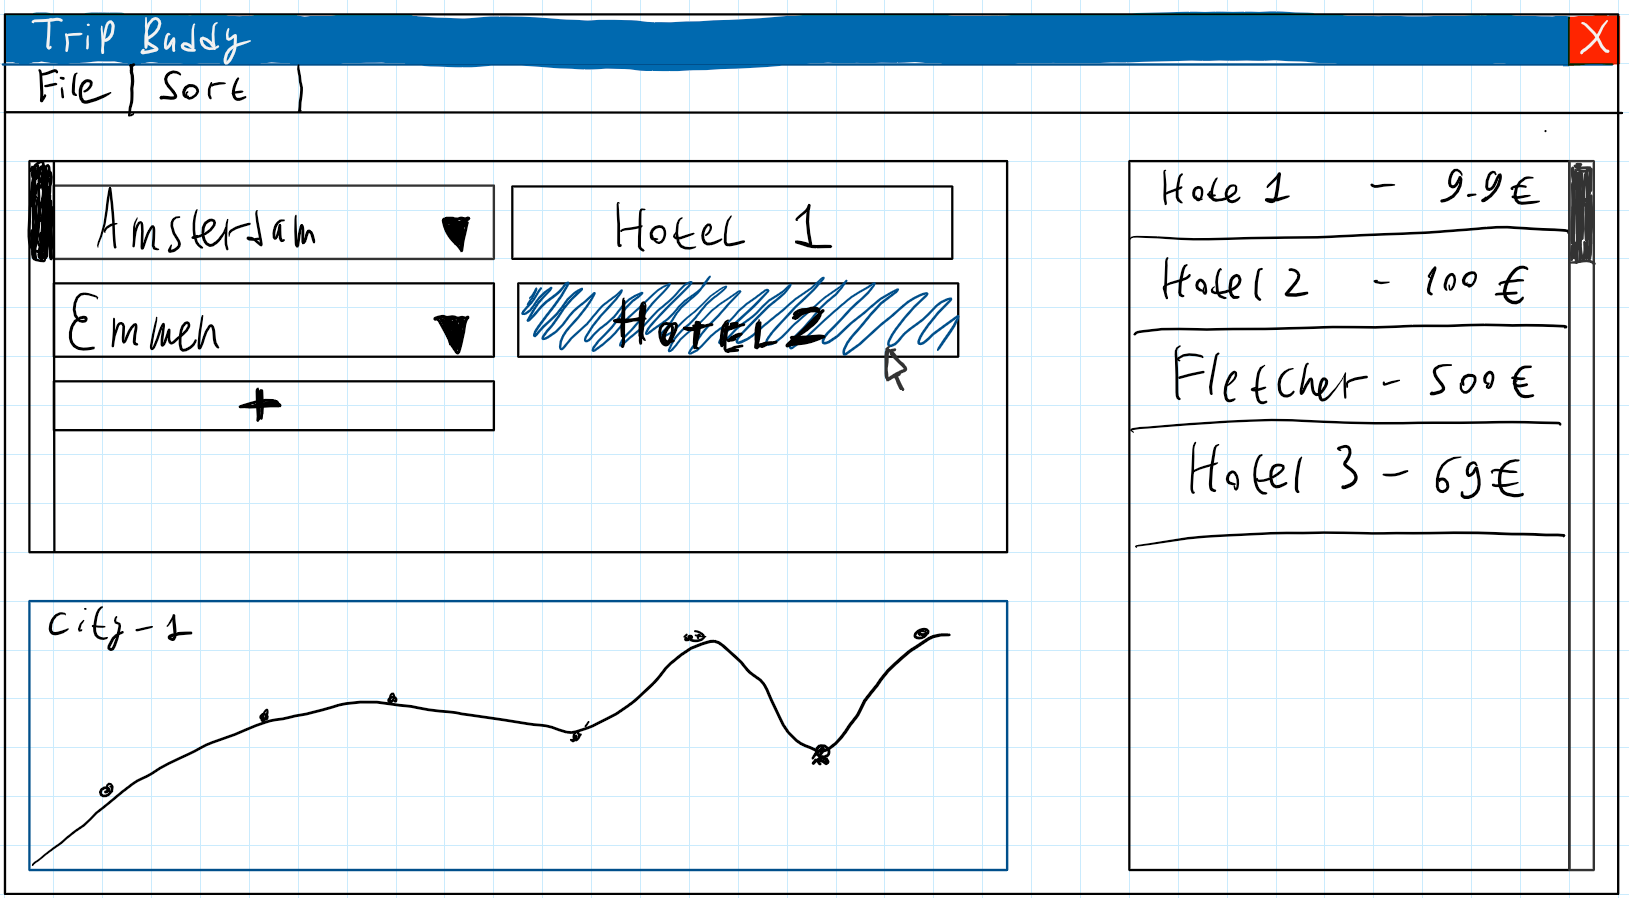 Trip Buddy X
File Sort
Amsterdam Hotel 1
Emmen HOTEL 2
+
Hote 1 - 9.9€
Hotel 2 - 100 €
Fletcher - 500 €
Hotel 3 - 69€
City-1